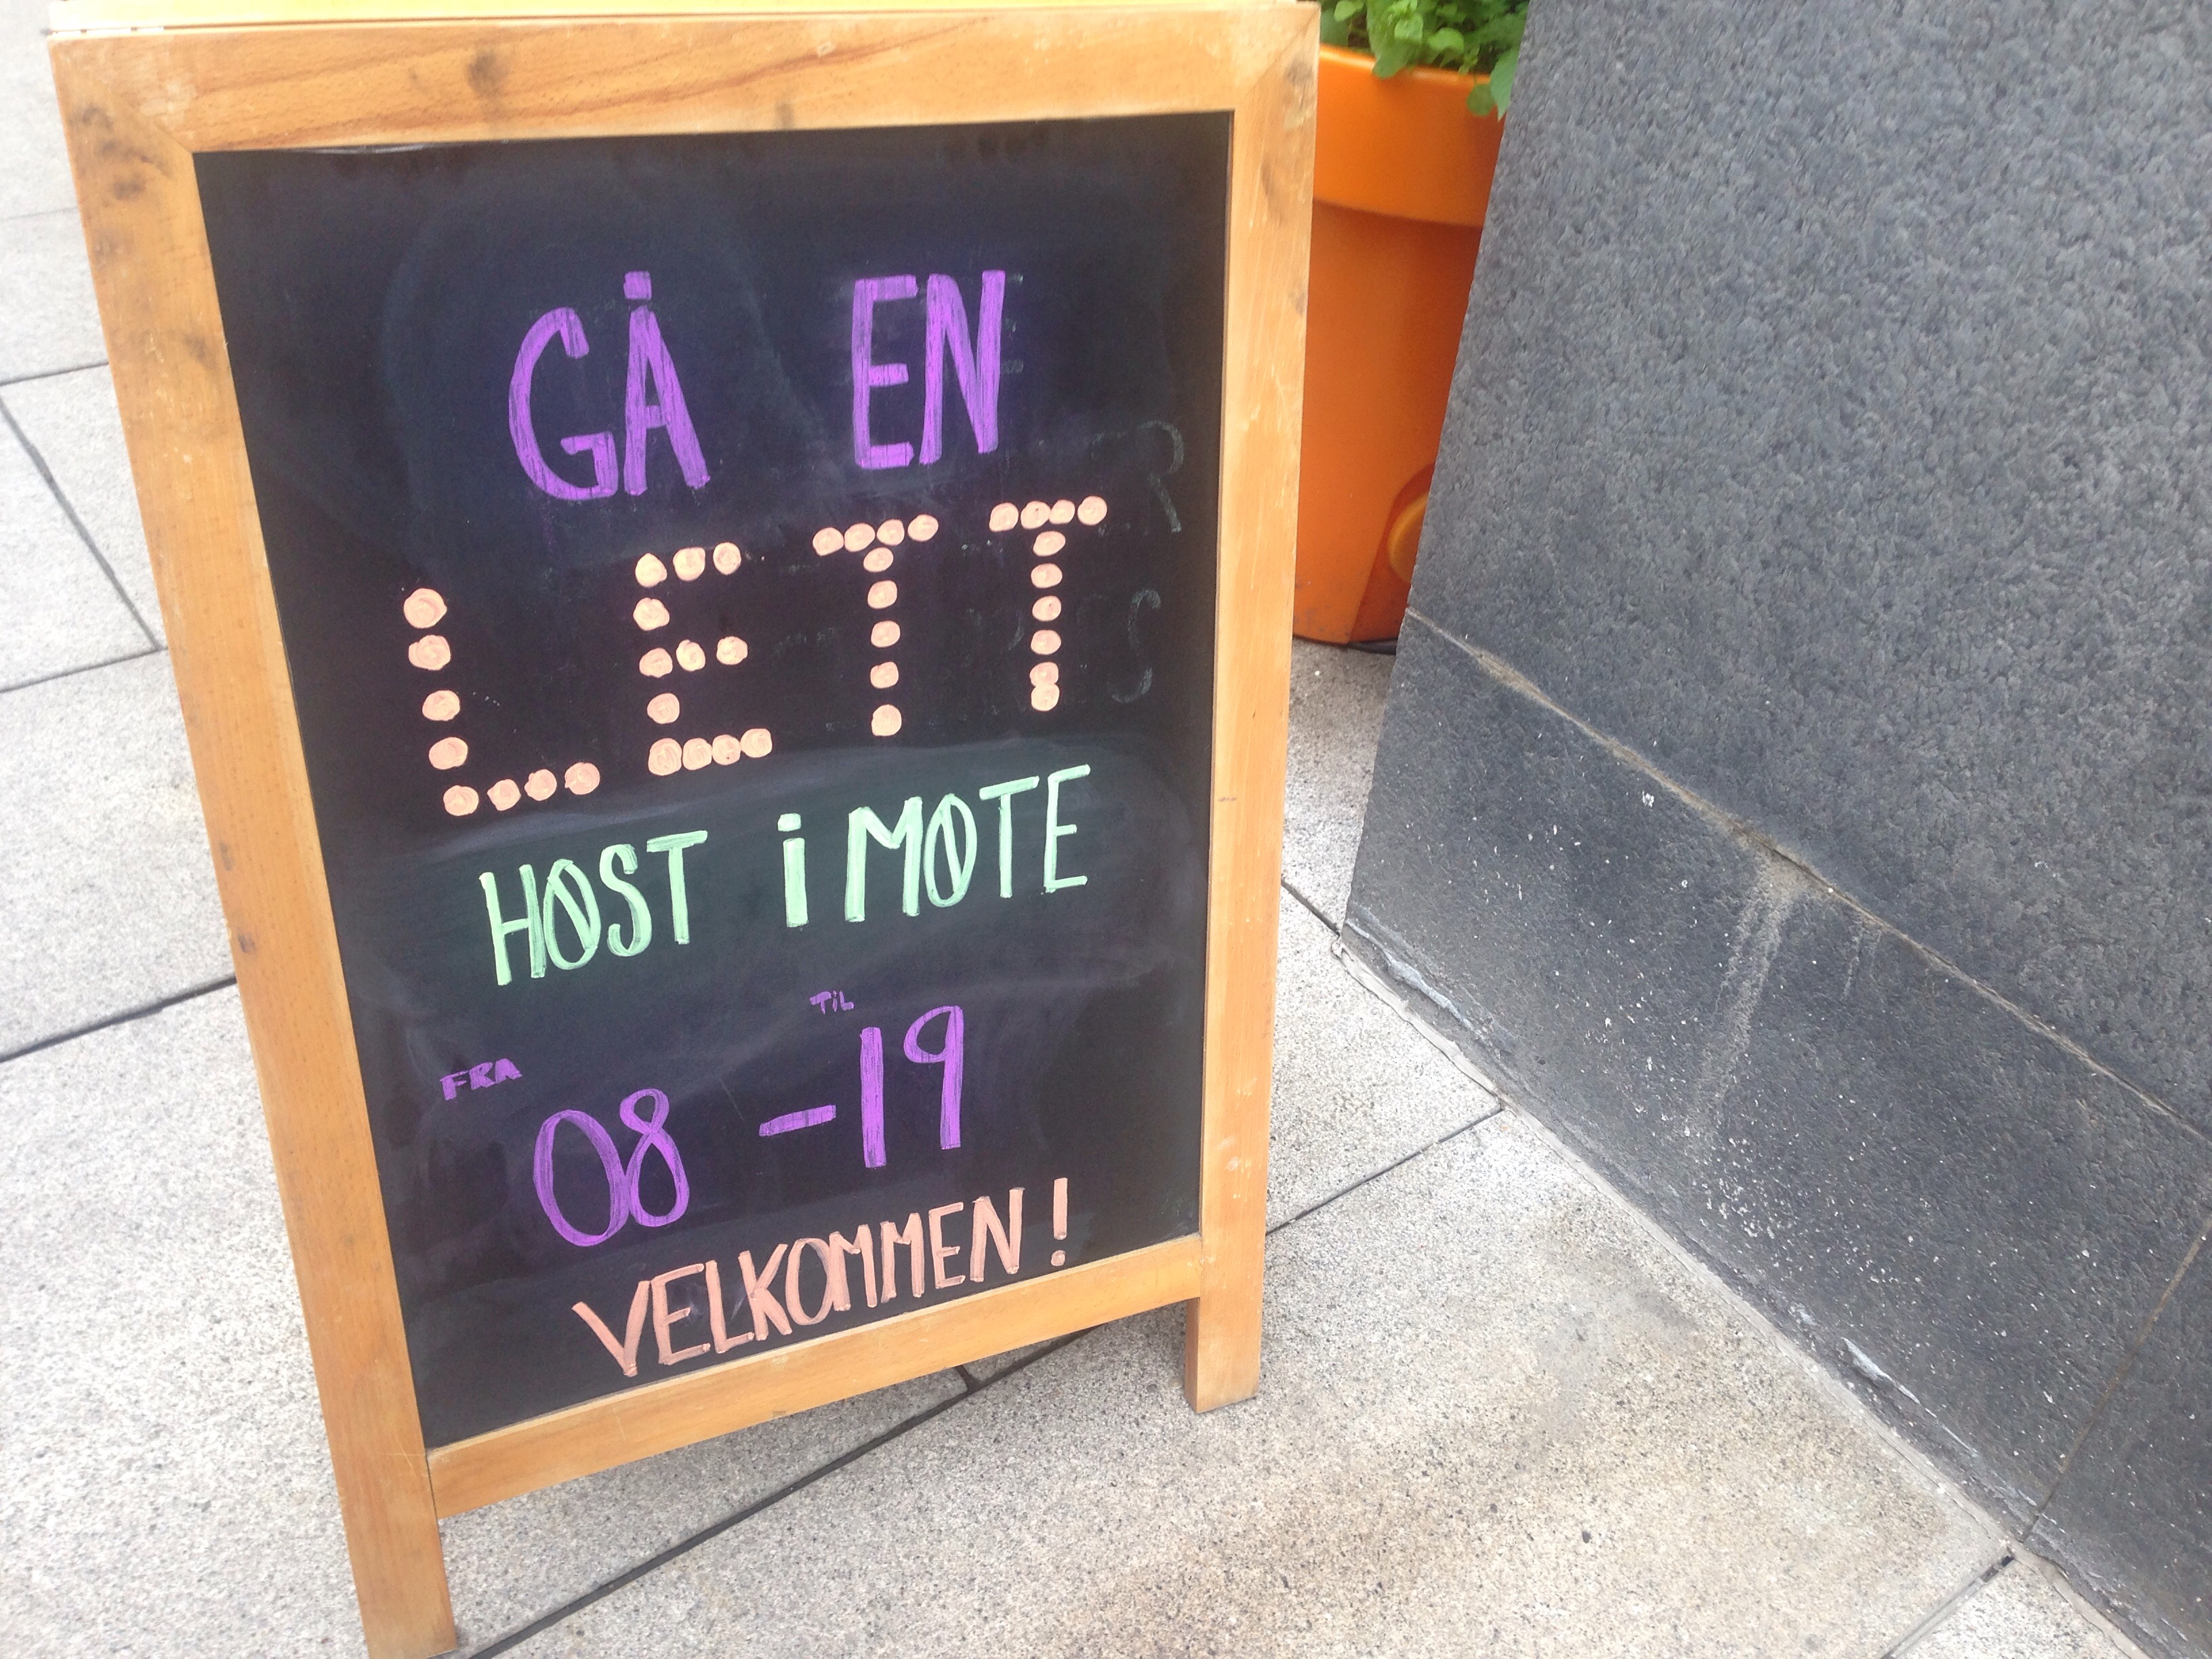 GÅ EN
LETT
HØST i MØTE
FRA 08 - TiL 19
VELKOMMEN!